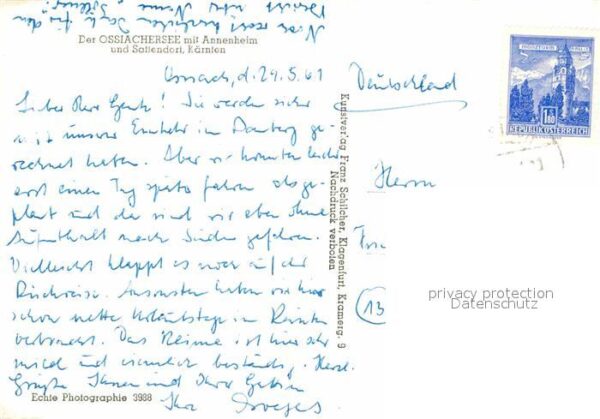 Noch recht herzlichen Dank für den
Bericht
Der OSSIACHERSEE mit Annenheim
und Sattendorf, Kärnten
Ossiach, d. 29.5.61
Lieber Herr ! Sie werden sicher
mit unserer Einkehr in Bamberg ge-
rechnet haben. Aber wir konnten leider
erst einen Tag später fahren als ge-
plant und da sind wir eben ohne
Aufenthalt nach Süden gefahren.
Vielleicht klappt es noch auf der
Rückreise. Ansonsten haben wir hier
schon nette Urlaubstage in Kärnten
verbracht. Das Klima ist hier sehr
mild und ziemlich beständig. Herzl.
Grüße Ihnen und Ihrer Gattin
Ihr
Echte Photographie 3988
Kunstverlag Franz Schilcher, Klagenfurt, Kramerg. 9
Nachdruck verboten
Deutschland
Herrn
13
1.80
REPUBLIK ÖSTERREICH
privacy protection
Datenschutz